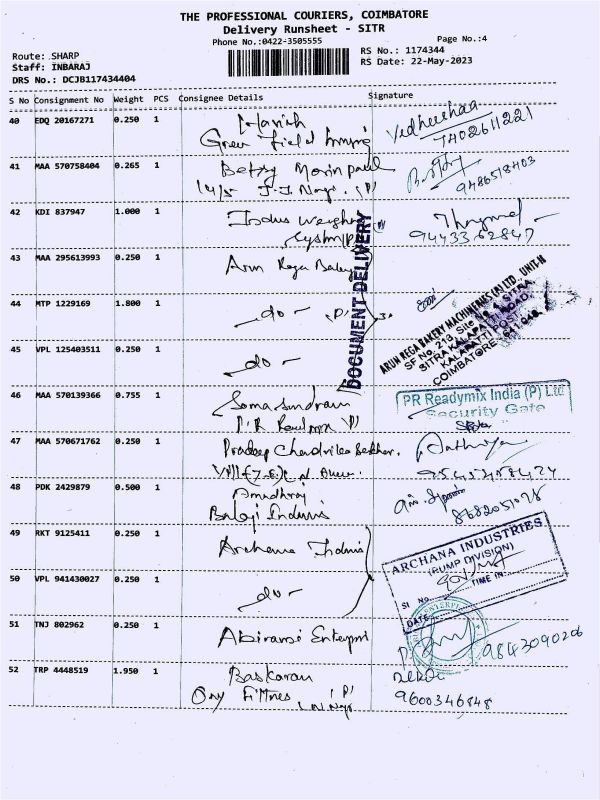 THE PROFESSIONAL COURIERS, COIMBATORE
Delivery Runsheet - SITR
Phone No.:0422-3505555
Page No.:4
Route: SHARP
Staff: INBARAJ
DRS No.: DCJB117434404
RS No.: 1174344
RS Date: 22-May-2023
S No Consignment No Weight PCS Consignee Details Signature
40 EDQ 20167271 0.250 1 Harish
Green Field
7402611221
41 MAA 570758404 0.265 1 Betzy Morin paul
9486518403
42 KDI 837947 1.000 1 Indus Weighing
System (P)
9443362847
43 MAA 295613993 0.250 1 Arun Rega Bakery
44 MTP 1229169 1.800 1 -do- (P)
DOCUMENT DELIVERY
ARUN REGA BAKERY MACHINERIES (P) LTD., UNIT-II
SF No. 213, Site No.
SITRA KALAPATTI ROAD,
KALAPATTI POST
COIMBATORE - 641048.
45 VPL 125403511 0.250 1 -do-
46 MAA 570139366 0.755 1 Somasundram
PR Readymix India (P) Ltd
Security Gate
47 MAA 570671762 0.250 1 Pradeep Chandrilea Sekhar.
48 PDK 2429879 0.500 1
Balaji Indus
49 RKT 9125411 0.250 1 Archana Indus
ARCHANA INDUSTRIES
(PUMP DIVISION)
TIME IN
Sl No.
DATE
50 VPL 941430027 0.250 1 -do-
51 TNJ 802962 0.250 1 Abirami Enterpri
9843090206
52 TRP 4448519 1.950 1 Baskaran
Fitness (P)
9600346848